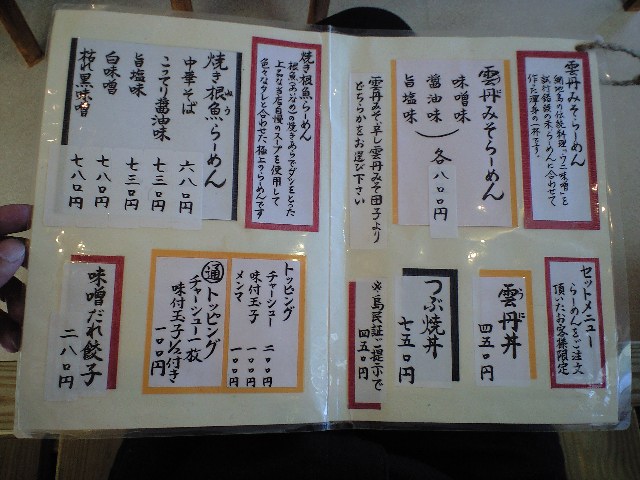 雲丹みそらーめん
網地島の伝統料理「ウニ味噌」を
試行錯誤の末らーめんに合わせて
作った渾身の一杯です。
雲丹みそらーめん
味噌味
醤油味
旨塩味
各八〇〇円
雲丹みそ、辛し雲丹みそ団子より
どちらかをお選び下さい
セットメニュー
らーめんをご注文
頂いたお客様限定
雲丹丼
四五〇円
つぶ焼丼
七五〇円
※島民証ご提示で
四五〇円
焼き根魚らーめん
根魚(あなめ)の焼きあらでダシをとった
上品な当店自慢のスープを使用して
色々なタレと合わせた極上のらーめんです
焼き根魚らーめん
中華そば 六八〇円
こってり醤油味 七三〇円
旨塩味 七三〇円
白味噌 七八〇円
枯れ黒味噌 七八〇円
トッピング
チャーシュー 二〇〇円
味付玉子 一〇〇円
メンマ 一〇〇円
通トッピング
チャーシュー一枚
味付玉子1/2付き
一〇〇円
味噌だれ餃子
二八〇円